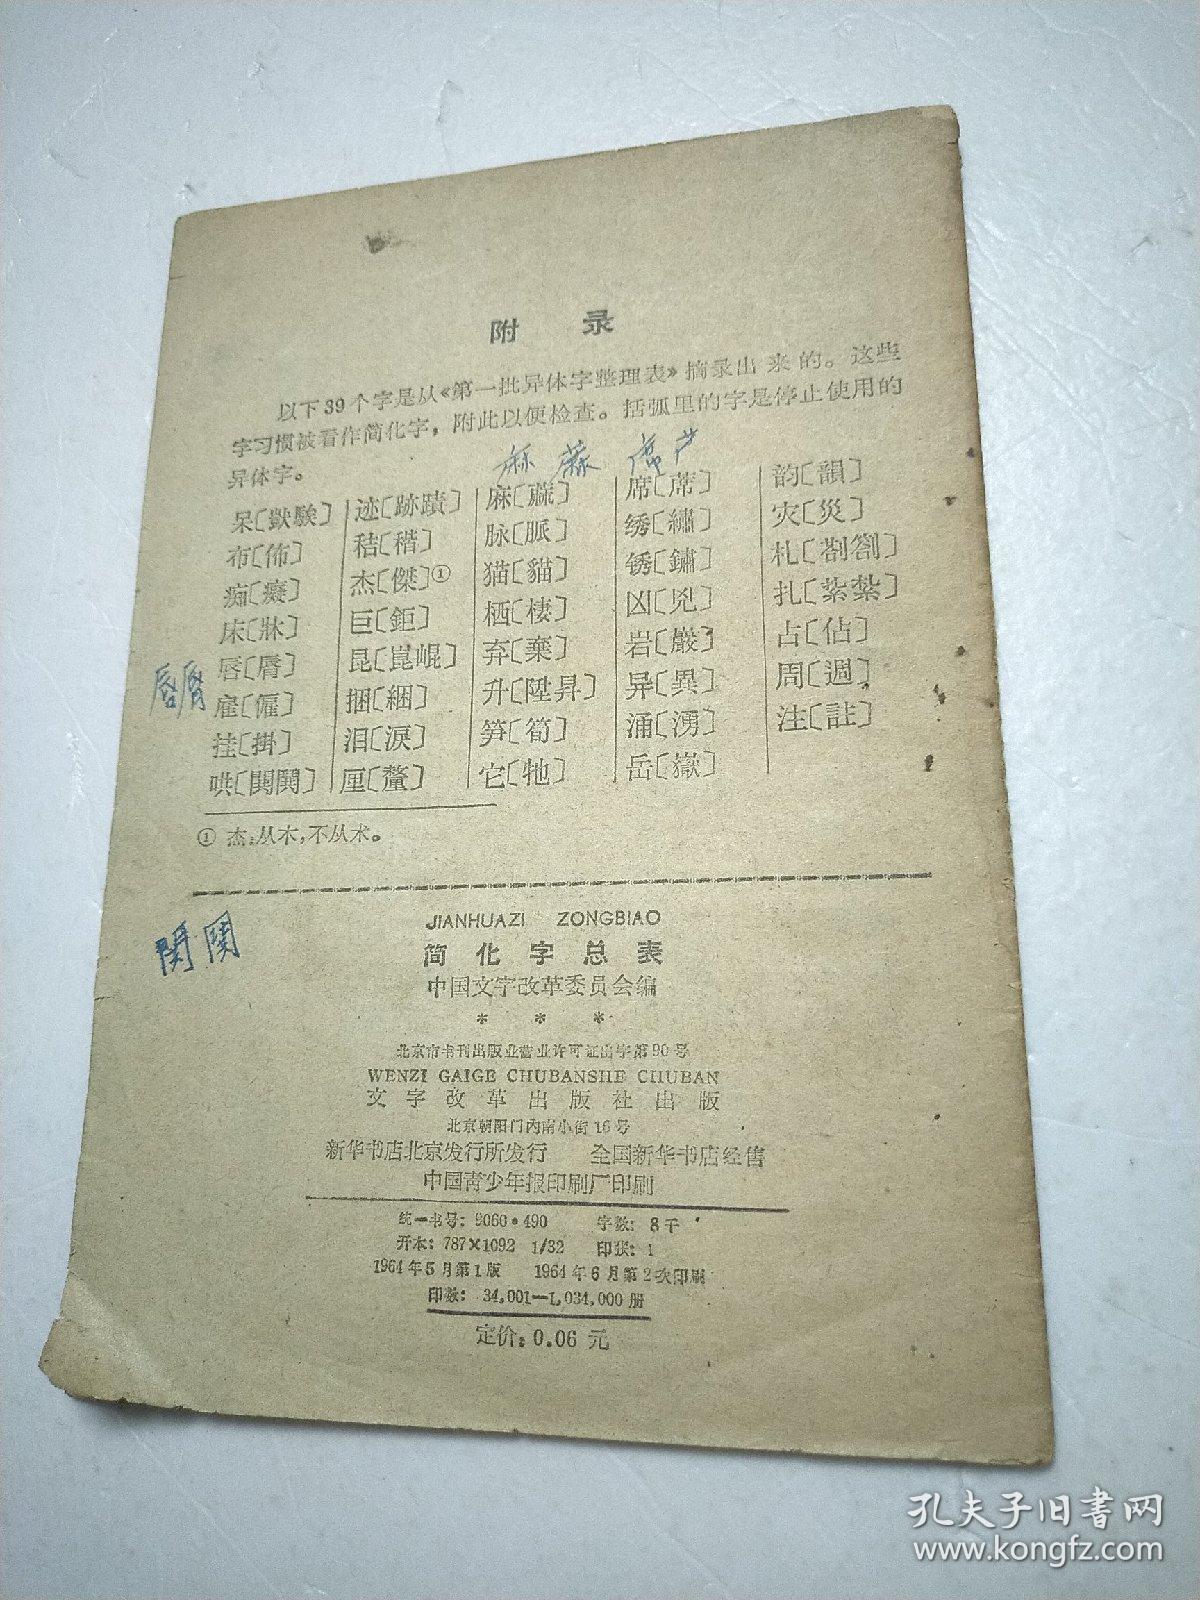 附 录
以下39个字是从《第一批异体字整理表》摘录出来的。这些
字习惯被看作简化字，附此以便检查。括弧里的字是停止使用的
异体字。
麻 蔴 席 芦
呆〔獃騃〕
布〔佈〕
痴〔癡〕
床〔牀〕
唇〔脣〕
雇〔僱〕
挂〔掛〕
哄〔閧鬨〕
迹〔跡蹟〕
秸〔稭〕
杰〔傑〕①
巨〔鉅〕
昆〔崑崐〕
捆〔綑〕
泪〔淚〕
厘〔釐〕
麻〔蔴〕
脉〔脈〕
猫〔貓〕
栖〔棲〕
弃〔棄〕
升〔陞昇〕
笋〔筍〕
它〔牠〕
席〔蓆〕
绣〔繡〕
锈〔鏽〕
凶〔兇〕
岩〔巖〕
异〔異〕
涌〔湧〕
岳〔嶽〕
韵〔韻〕
灾〔災〕
札〔剳劄〕
扎〔紥紮〕
占〔佔〕
周〔週〕
注〔註〕
唇脣
① 杰：从木，不从术。
閧 鬨
JIANHUAZI ZONGBIAO
简化字总表
中国文字改革委员会编
* * *
北京市书刊出版业营业许可证出字第90号
WENZI GAIGE CHUBANSHE CHUBAN
文字改革出版社出版
北京朝阳门内南小街16号
新华书店北京发行所发行 全国新华书店经售
中国青少年报印刷厂印刷
统一书号：9060·490 字数：8千
开本：787×1092 1/32 印张：1
1964年5月第1版 1964年6月第2次印刷
印数：34,001—1,034,000册
定价：0.06 元
孔夫子旧书网
www.kongfz.com